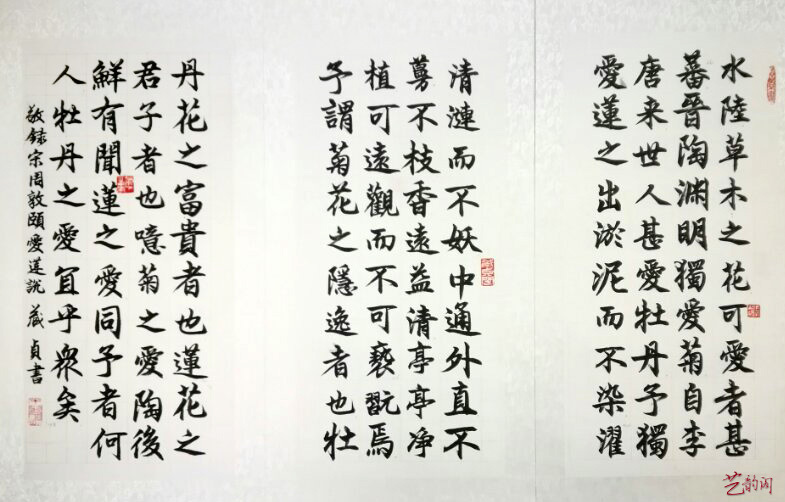 水陸草木之花可愛者甚
蕃晉陶渊明獨愛菊自李
唐来世人甚愛牡丹予獨
愛蓮之出淤泥而不染濯
清漣而不妖中通外直不
蔓不枝香遠益清亭亭净
植可遠觀而不可褻翫焉
予謂菊花之隱逸者也牡
丹花之富貴者也蓮花之
君子者也噫菊之愛陶後
鮮有聞蓮之愛同予者何
人牡丹之愛宜乎衆矣
敬録宋周敦頤愛蓮説 藏貞書